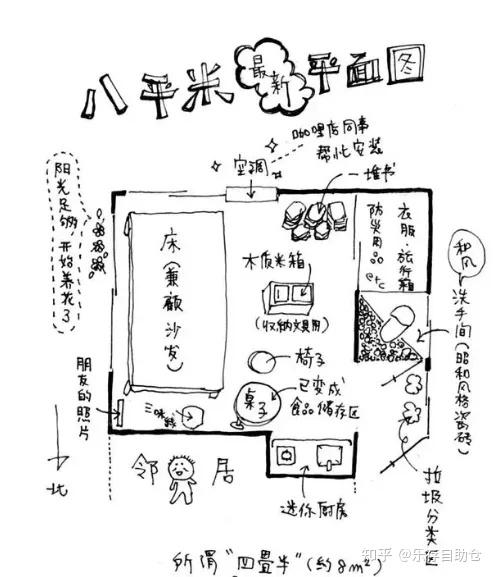 八平米
最新
平面图
咖哩店同事
帮忙安装
空调
一堆书
阳光足够 开始养花了
床(兼顾沙发)
木质米箱
(收纳文具用)
衣服·旅行箱
防灾用品
etc
和风
洗手间(昭和风格瓷砖)
椅子
桌子
已变成
食品储存区
三味线
朋友的照片
北
邻居
迷你厨房
垃圾分类区
所谓"四畳半"(约8m²)
知乎 @乐存自助仓